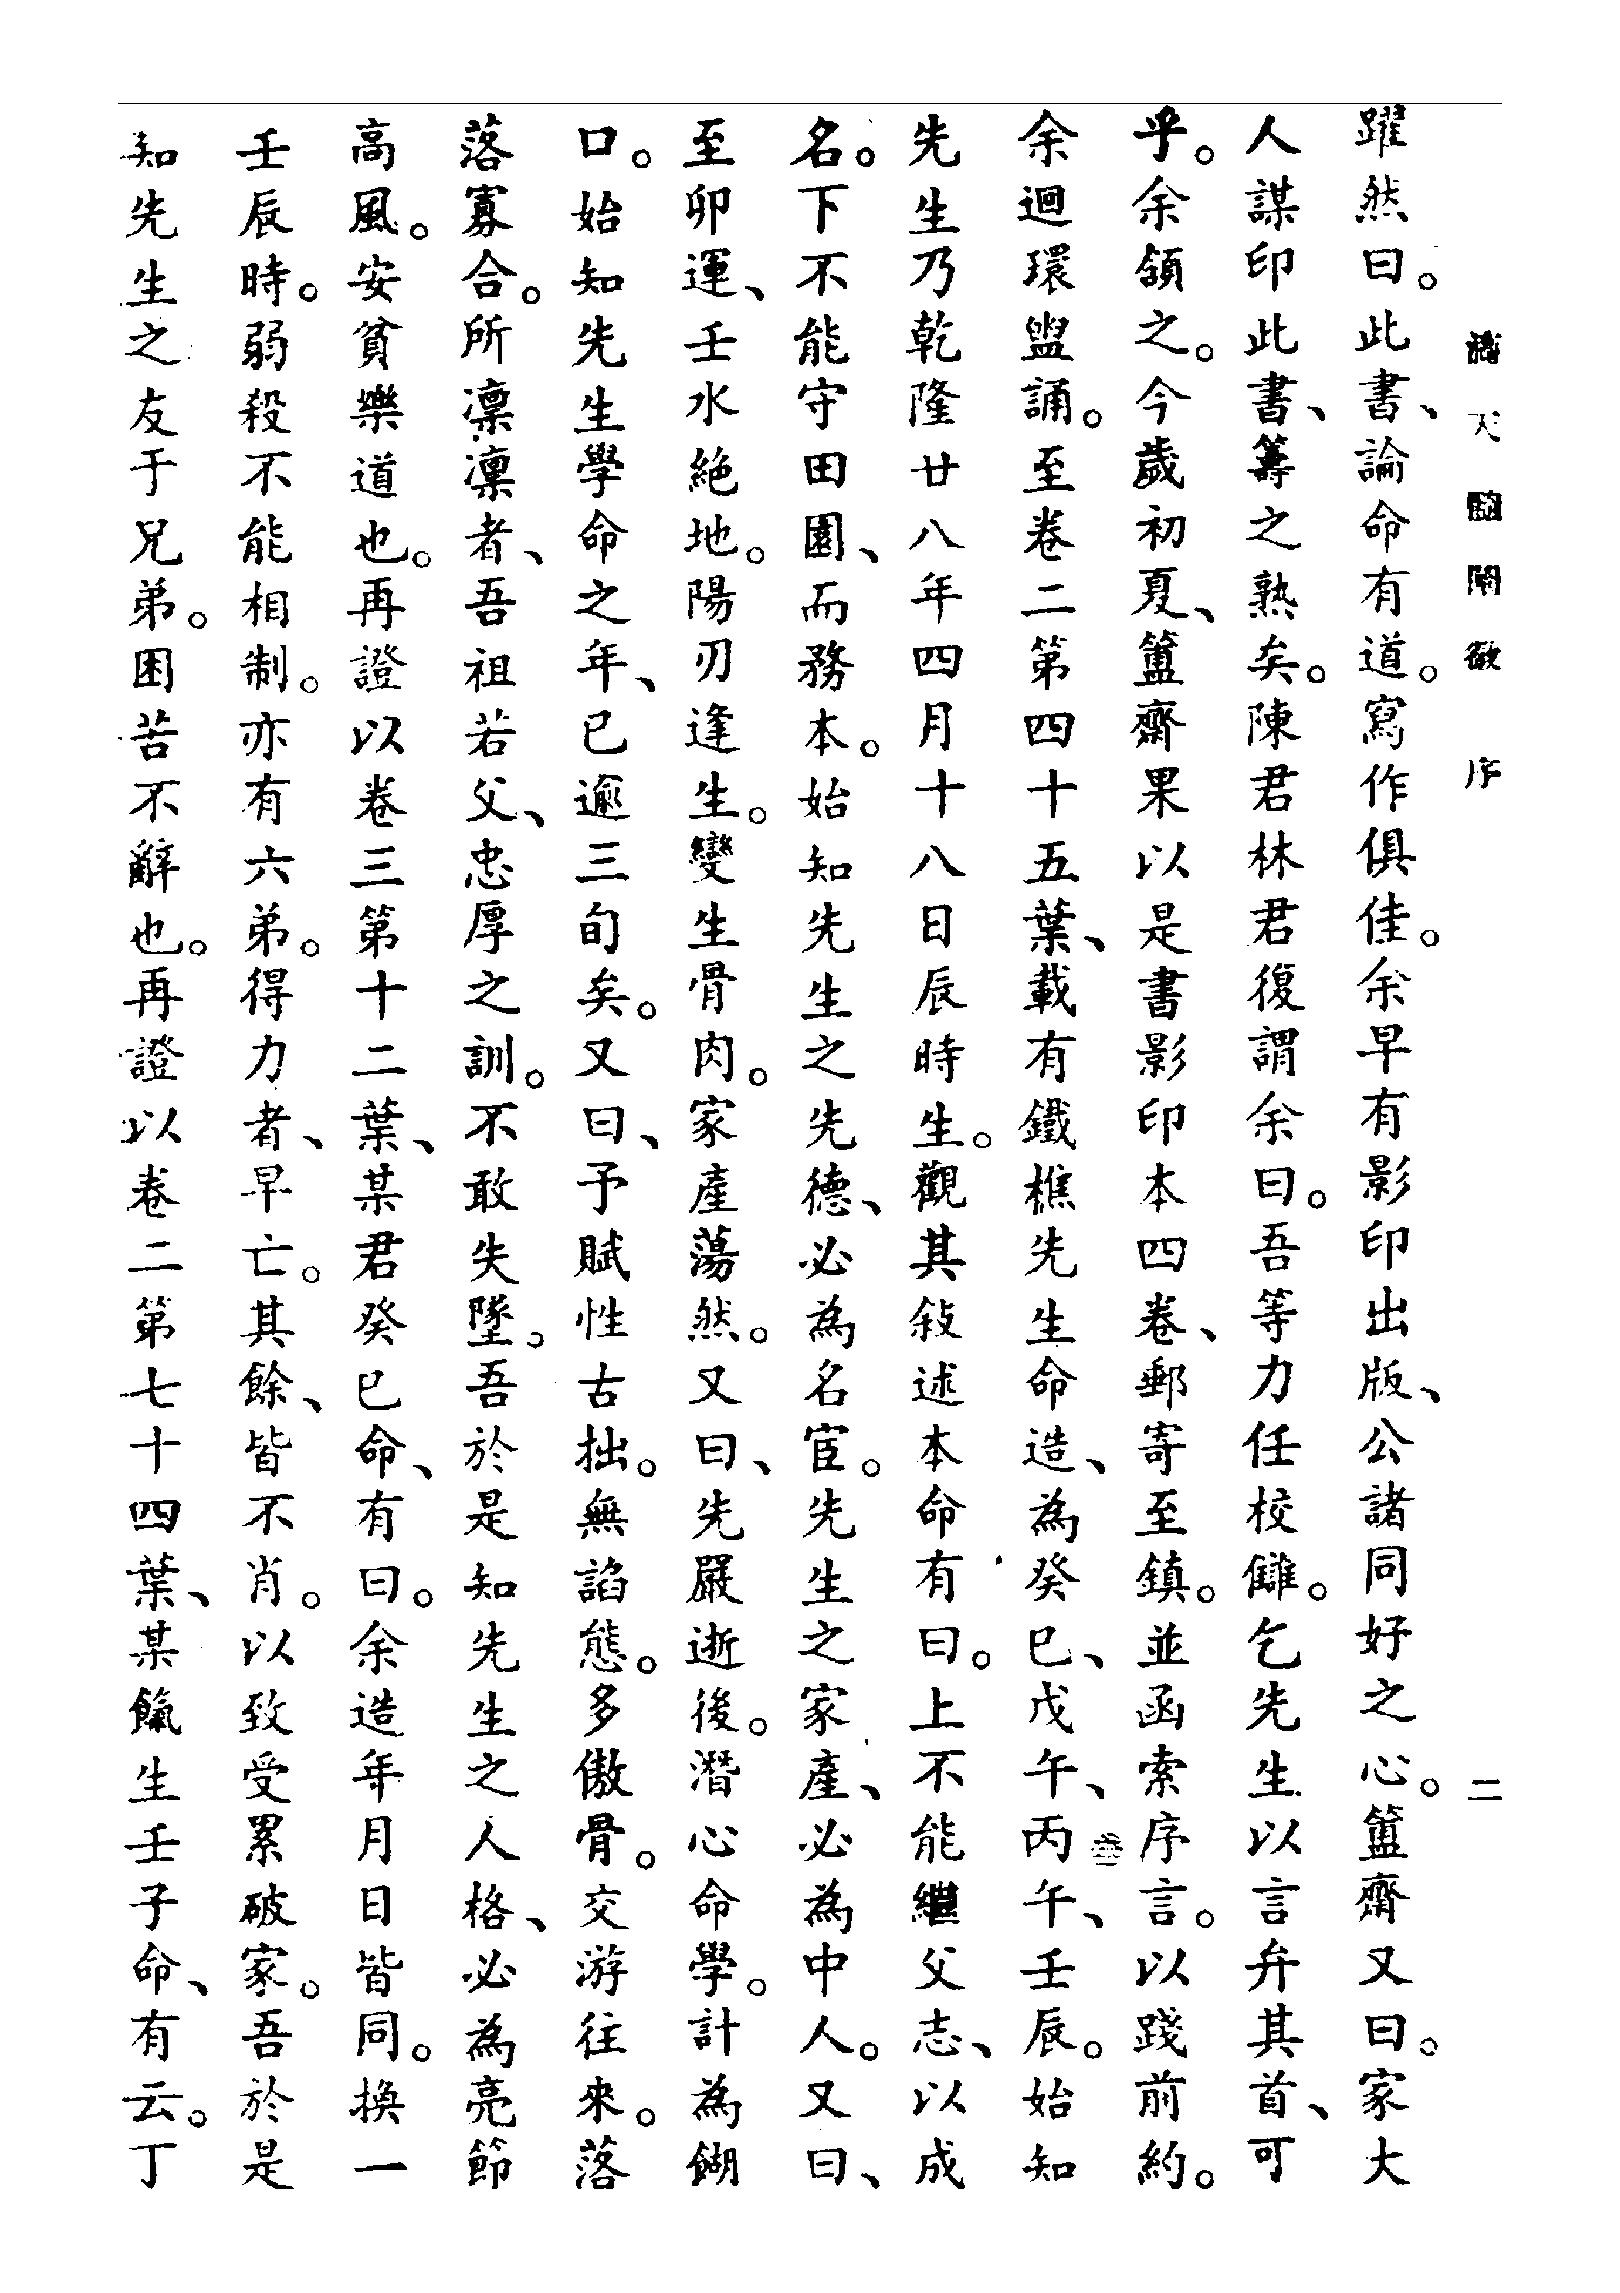 滴天髓闡微　序　二
躍然曰。此書、論命有道。寫作俱佳。余早有影印出版、公諸同好之心。簠齋又曰。家大
人謀印此書、籌之熟矣。陳君林君復謂余曰。吾等力任校讎。乞先生以言弁其首、可
乎。余頷之。今歲初夏、簠齋果以是書影印本四卷、郵寄至鎮。並函索序言。以踐前約。
余迴環盥誦。至卷二第四十五葉、載有鐵樵先生命造、為癸巳、戊午、丙午、壬辰。始知
先生乃乾隆廿八年四月十八日辰時生。觀其敍述本命有曰。上不能繼父志、以成
名。下不能守田園、而務本。始知先生之先德、必為名宦。先生之家產、必為中人。又曰、
至卯運、壬水絕地。陽刃逢生。變生骨肉。家產蕩然。又曰、先嚴逝後。潛心命學。計為餬
口。始知先生學命之年、已逾三旬矣。又曰、予賦性古拙。無諂態。多傲骨。交游往來。落
落寡合。所凜凜者、吾祖若父、忠厚之訓。不敢失墜。吾於是知先生之人格、必為亮節
高風。安貧樂道也。再證以卷三第十二葉、某君癸巳命、有曰。余造年月日皆同。換一
壬辰時。弱殺不能相制。亦有六弟。得力者、早亡。其餘、皆不肖。以致受累破家。吾於是
知先生之友于兄弟。困苦不辭也。再證以卷二第七十四葉、某餼生壬子命、有云。丁